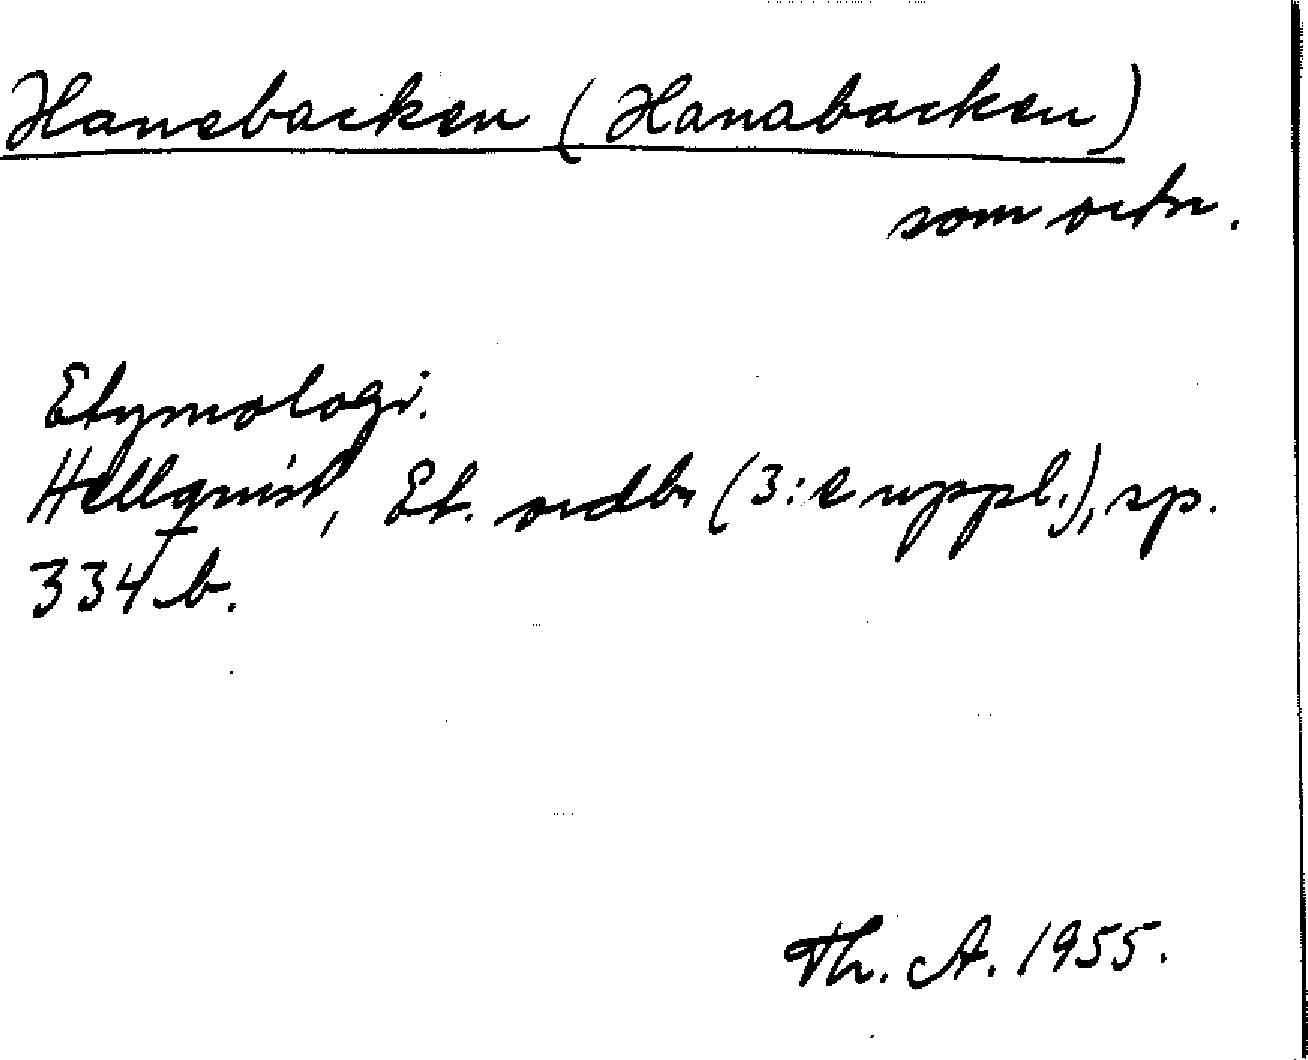 Hanebacken (Hanabacken)
som ortn.
Etymologi.
Hellquist, Et. ordbr (3:e uppl.), sp.
334 b.
Th. A. 1955.